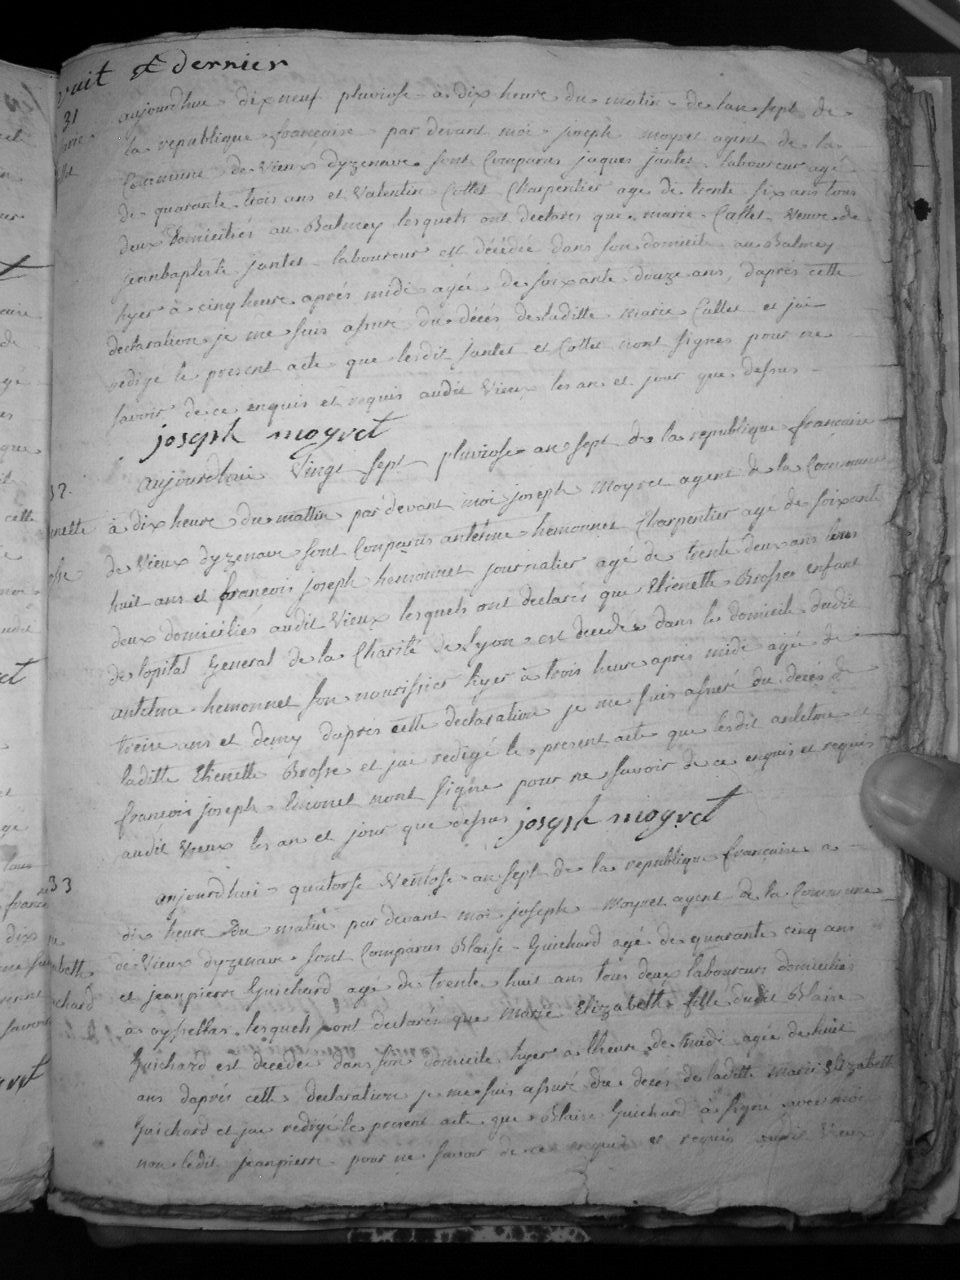 huit et dernier
31
aujourdhui dixneuf pluviose à dix heure du matin de lan sept de
la republique française par devant moi joseph moyret agent de la
Commune de Vieux dyzenave sont Comparus jaques jantet laboureur agé
de quarante trois ans et Valentin Collet Charpentier age de trente six ans tous
deux domiciliés au Balmey lesquels ont declares que marie Callet Veuve de
jeanbaptiste jantet laboureur est décédée dans son domicile au Balmey
hyer à cinq heure après midi agée de soixante douze ans, daprés cette
declaration je me suis assuré du décés deladitte marie Callet et jai
redigé le present acte que lesdit jantet et Collet nont signes pour ne
savoir de ce enquis et requis audit Vieux les an et jour que dessus
joseph moyret
32.
aujourdhui Vingt sept pluviose an sept de la republique française
à dix heure du mattin par devant moi joseph moyret agent de la Commune
de Vieux dyzenave sont Comparus antelme hemonnet Charpentier agé de soixante
huit ans et francois joseph hemonnet journalier agé de trente deux ans tous
deux domiciliés audit Vieux lesquels ont declarés que Etienette Brosse enfant
de lopital General de la Charité de Lyon est decedé dans le domicile dudit
antelme hemonnet son nourissier hyer à trois heure apres midi agé de
treize ans et demy daprés cette declaration je me suis assuré du décés de
laditte Etienette Brosse et jai redigé le present acte que lesdit antelme et
françois joseph Emonet nont signe pour ne savoir de ce enquis et requis
audit Vieux les an et jour que dessus joseph moyret
33
aujourdhui quatorse Ventose an sept de la republique française a
dix heure du matin par devant moi joseph moyret agent de la Commune
de Vieux dyzenave sont Comparus Blaise Guichard agé de quarante cinq ans
et jeanpierre Guichard age de trente huit ans tous deux laboureurs domiciliés
à oyssellas lesquels ont declarés que marie Elizabeth fille dudit Blaise
Guichard est decedée dans son domicile hyer a lheure de midi agée de huit
ans daprés cette declaration je me suis assuré du decés de laditte marie Elizabeth
Guichard et jai redigé le present acte que Blaise Guichard à signé avec moi
non ledit jeanpierre pour ne savoir de ce enquis et requis audit Vieux